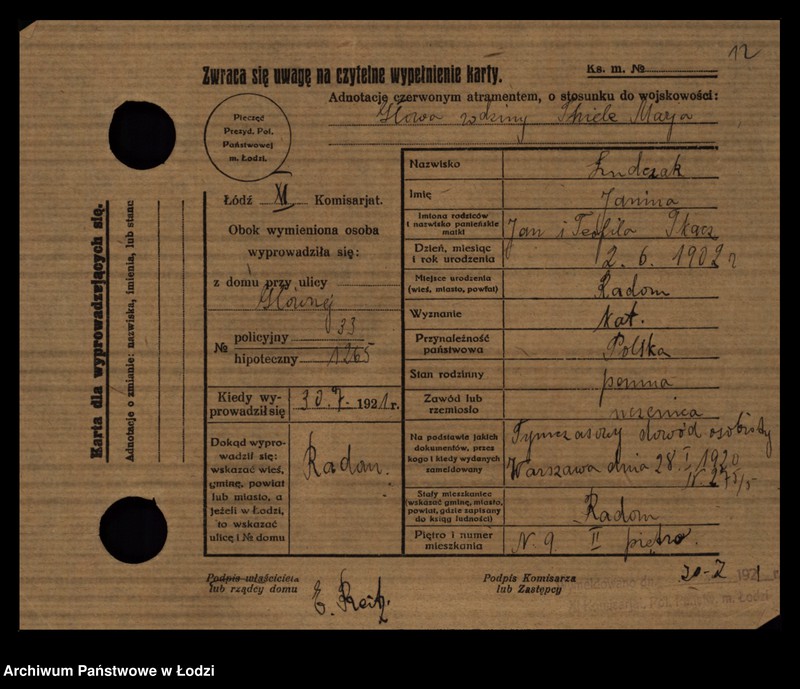 12
Zwraca się uwagę na czytelne wypełnienie karty.
Ks. m. №
Adnotacje czerwonym atramentem, o stosunku do wojskowości:
Głowa rodziny Thiele Marja
Pieczęć
Prezyd. Pol.
Państwowej
m. Łodzi.
Karta dla wyprowadzających się.
Adnotacje o zmianie: nazwiska, imienia, lub stanc
Łódź XI Komisarjat.
Obok wymieniona osoba
wyprowadziła się:
z domu przy ulicy
Głównej
№ policyjny 33
hipoteczny 1265
Kiedy wy-
prowadził się 30.7. 1921 r.
Dokąd wypro-
wadził się:
wskazać wieś,
gminę, powiat
lub miasto, a
jeżeli w Łodzi,
to wskazać
ulicę i № domu
Radom.
Nazwisko
Imię Janina
Imiona rodziców
i nazwisko panieńskie
matki
Jan i Teofila Tkacz
Dzień, miesiąc
i rok urodzenia 2. 6. 1902 r
Miejsce urodzenia
(wieś, miasto, powiat) Radom
Wyznanie Kat.
Przynależność
państwowa Polska
Stan rodzinny panna
Zawód lub
rzemiosło uczenica
Na podstawie jakich
dokumentów, przez
kogo i kiedy wydanych
zameldowany
Tymczasowy dowód osobisty
Warszawa dnia 28 I 1920
Stały mieszkaniec
(wskazać gminę, miasto,
powiat, gdzie zapisany
do ksiąg ludności) Radom
Piętro i numer
mieszkania N. 9 II piętro.
Podpis właściciela
lub rządcy domu
Podpis Komisarza
lub Zastępcy
Archiwum Państwowe w Łodzi